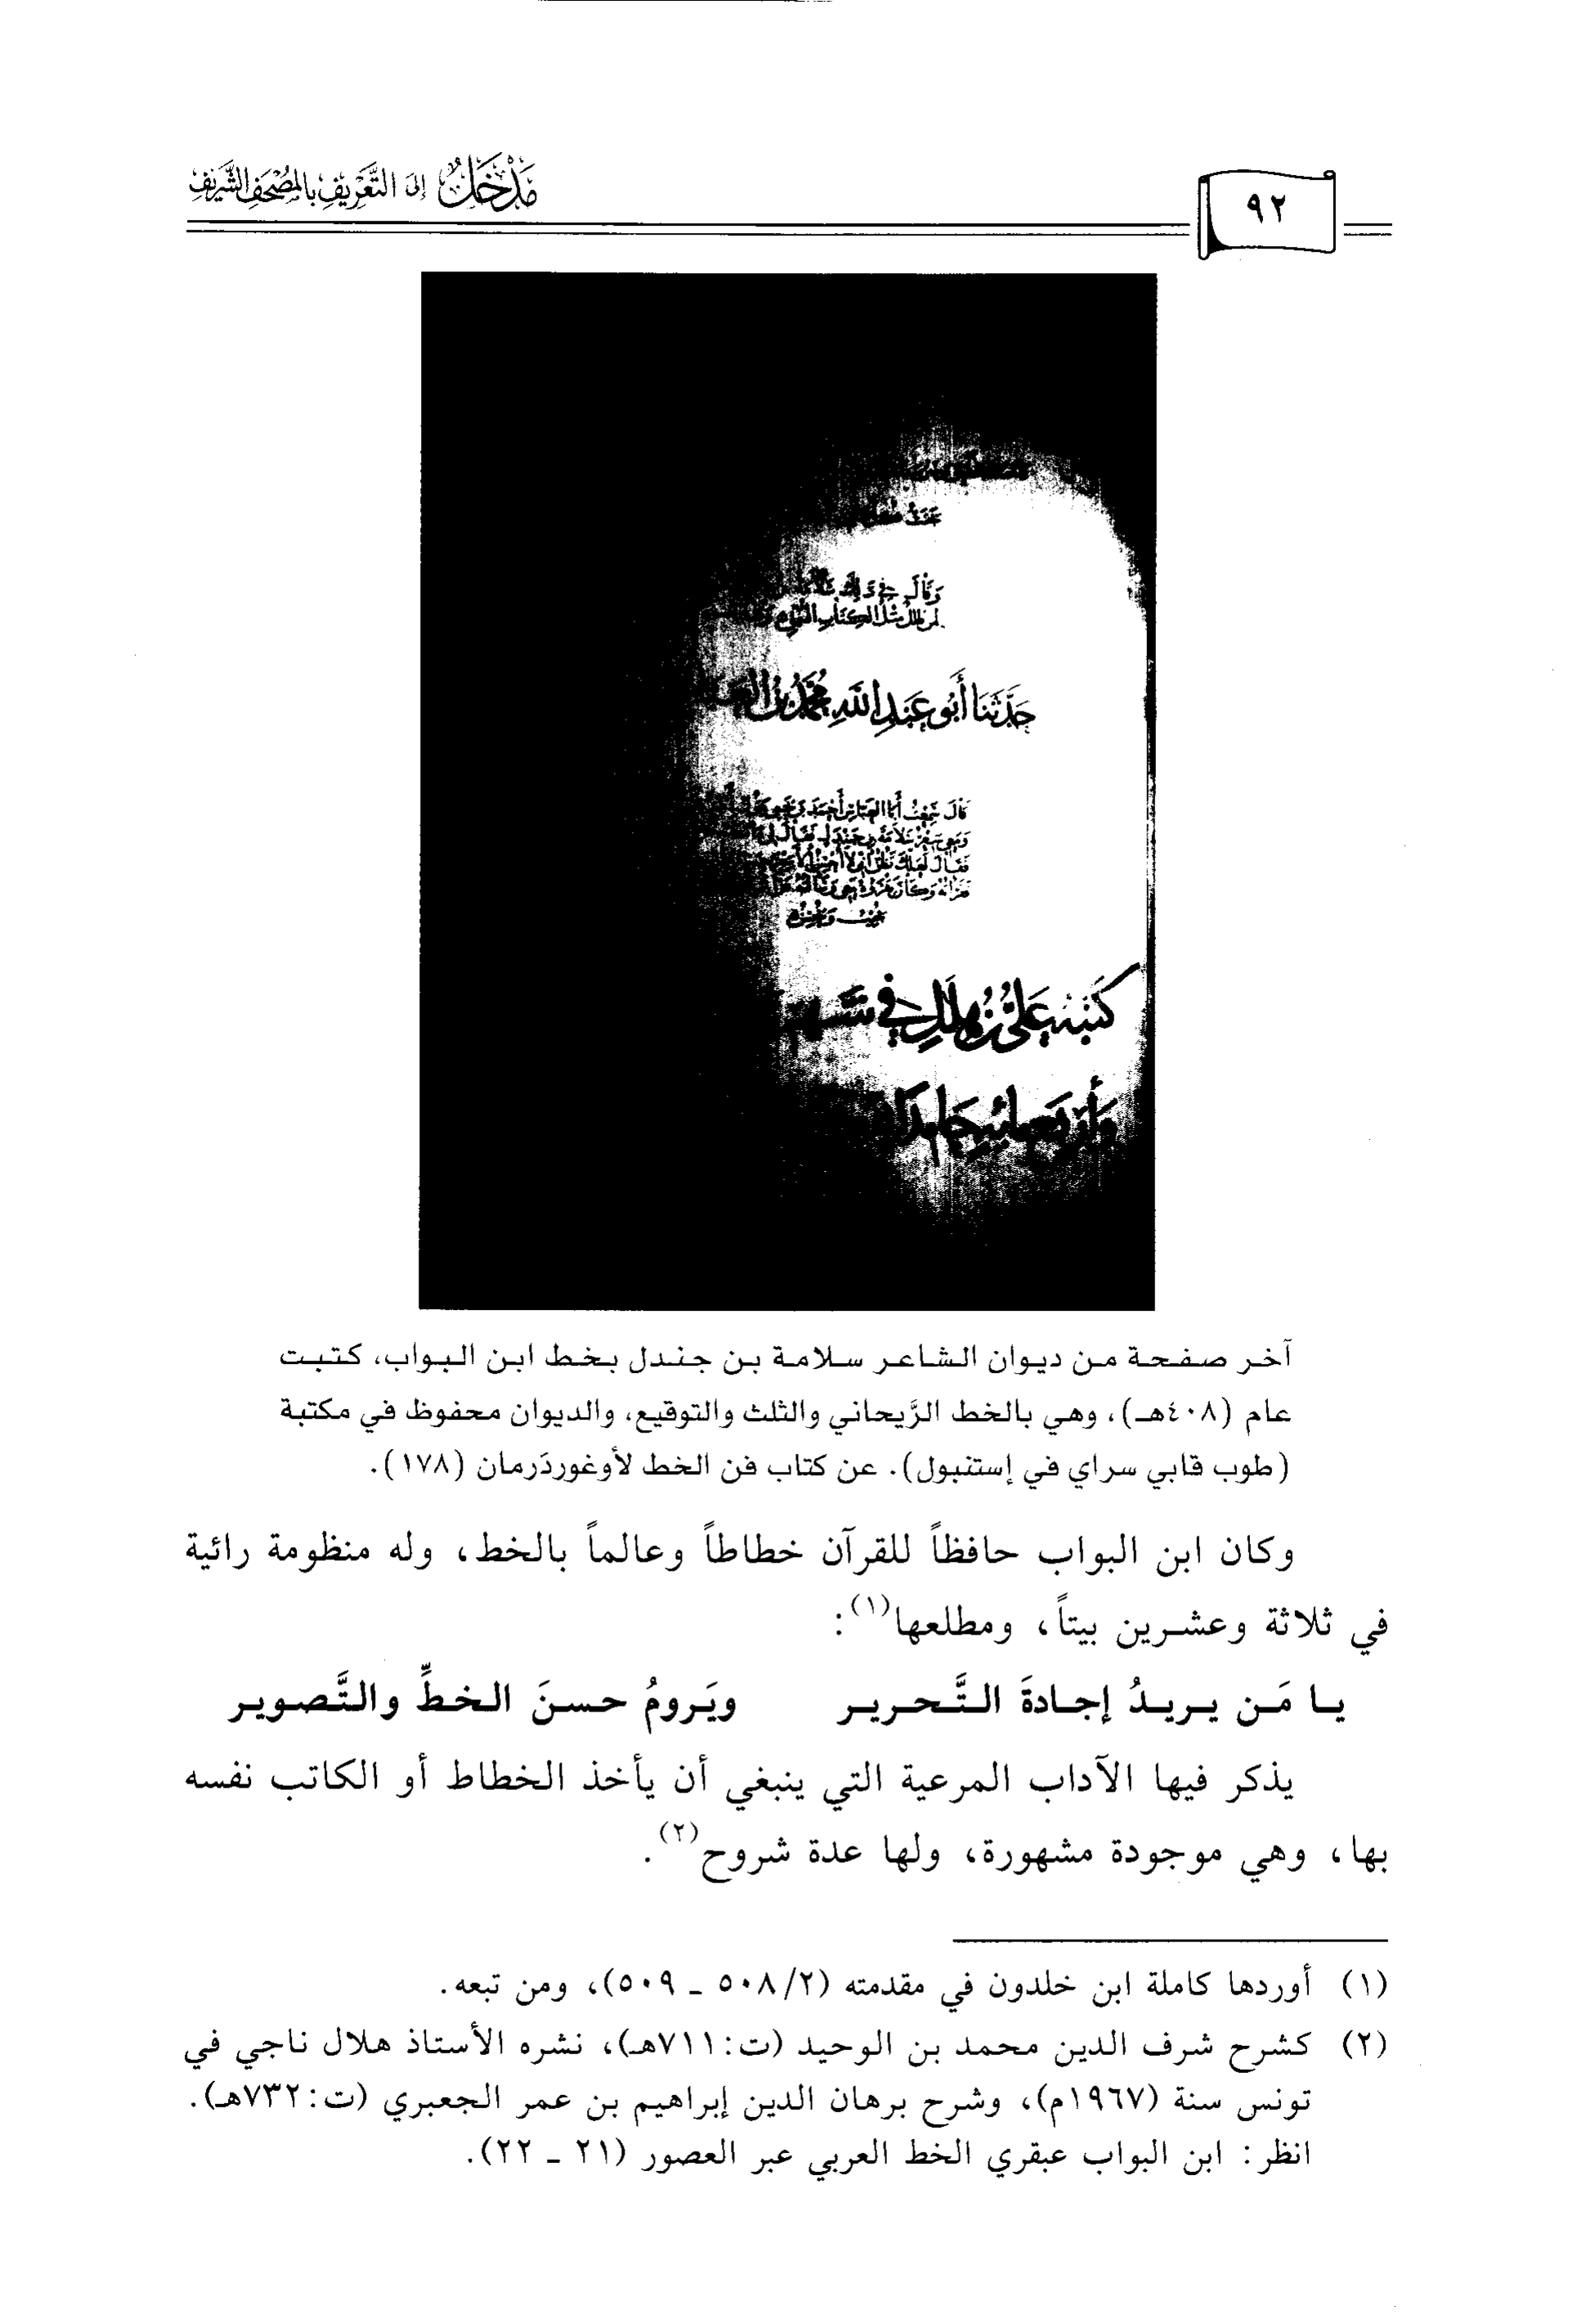 ٩٢
مَدْخَلٌ إلى التَّعْرِيفِ بِالمُصْحَفِ الشَّرِيفِ
وقال في ذلك
حَدَّثَنَا أَبُو عَبْدِ اللَّهِ مُحَمَّدُ بْنُ
قَالَ سَمِعْتُ أَبَا الْعَبَّاسِ أَحْمَدَ بْنَ
كَتَبَهُ عَلِيُّ بْنُ هِلَالٍ فِي شَهْرِ
آخر صفحة من ديوان الشاعر سلامة بن جندل بخط ابن البواب، كتبت
عام (٤٠٨هـ)، وهي بالخط الرَّيحاني والثلث والتوقيع، والديوان محفوظ في مكتبة
(طوب قابي سراي في إستنبول). عن كتاب فن الخط لأوغوردَرمان (١٧٨).
وكان ابن البواب حافظاً للقرآن خطاطاً وعالماً بالخط، وله منظومة رائية
في ثلاثة وعشرين بيتاً، ومطلعها(١):
يا مَن يريدُ إجادةَ التَّحرير ويَرومُ حسنَ الخطِّ والتَّصوير
يذكر فيها الآداب المرعية التي ينبغي أن يأخذ الخطاط أو الكاتب نفسه
بها، وهي موجودة مشهورة، ولها عدة شروح(٢).
(١) أوردها كاملة ابن خلدون في مقدمته (٢/ ٥٠٨ ـ ٥٠٩)، ومن تبعه.
(٢) كشرح شرف الدين محمد بن الوحيد (ت: ٧١١هـ)، نشره الأستاذ هلال ناجي في
تونس سنة (١٩٦٧م)، وشرح برهان الدين إبراهيم بن عمر الجعبري (ت: ٧٣٢هـ).
انظر: ابن البواب عبقري الخط العربي عبر العصور (٢١ ـ ٢٢).